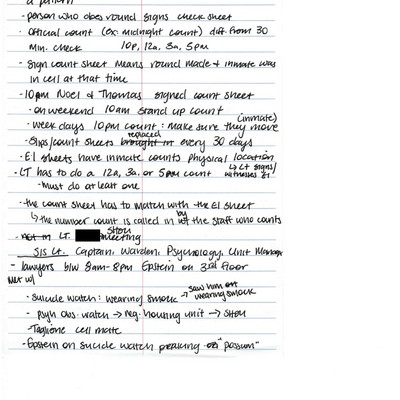 a pattern
- person who does round signs check sheet
- official count (ex. midnight count) diff. from 30
min. check 10p, 12a, 3a, 5pm
- sign count sheet means round made + inmate was
in cell at that time
- 10pm Noel & Thomas signed count sheet
- on weekend 10am stand up count
(inmate)
- week days 10pm count: make sure they move
replaced
- Slips/count sheets brought in every 30 days
- E1 sheets have inmate counts physical location
↳ Lt signs/
witnesses it
- LT has to do a 12a, 3a, or 5pm count
- Must do at least one
- the count sheet has to match with the E1 sheet
↳ the number count is called in by the staff who counts
- met in LT. SHU meeting
SIS Lt. Captain, Warden, Psychology, Unit Manager
- lawyers b/w 8am-8pm Epstein on 3rd floor
met w/
- suicide watch: wearing smock → saw him wearing smock
- psyh obs. watch → reg. housing unit → SHU
- Taglione cell mate
- Epstein on suicide watch peaking "possum"